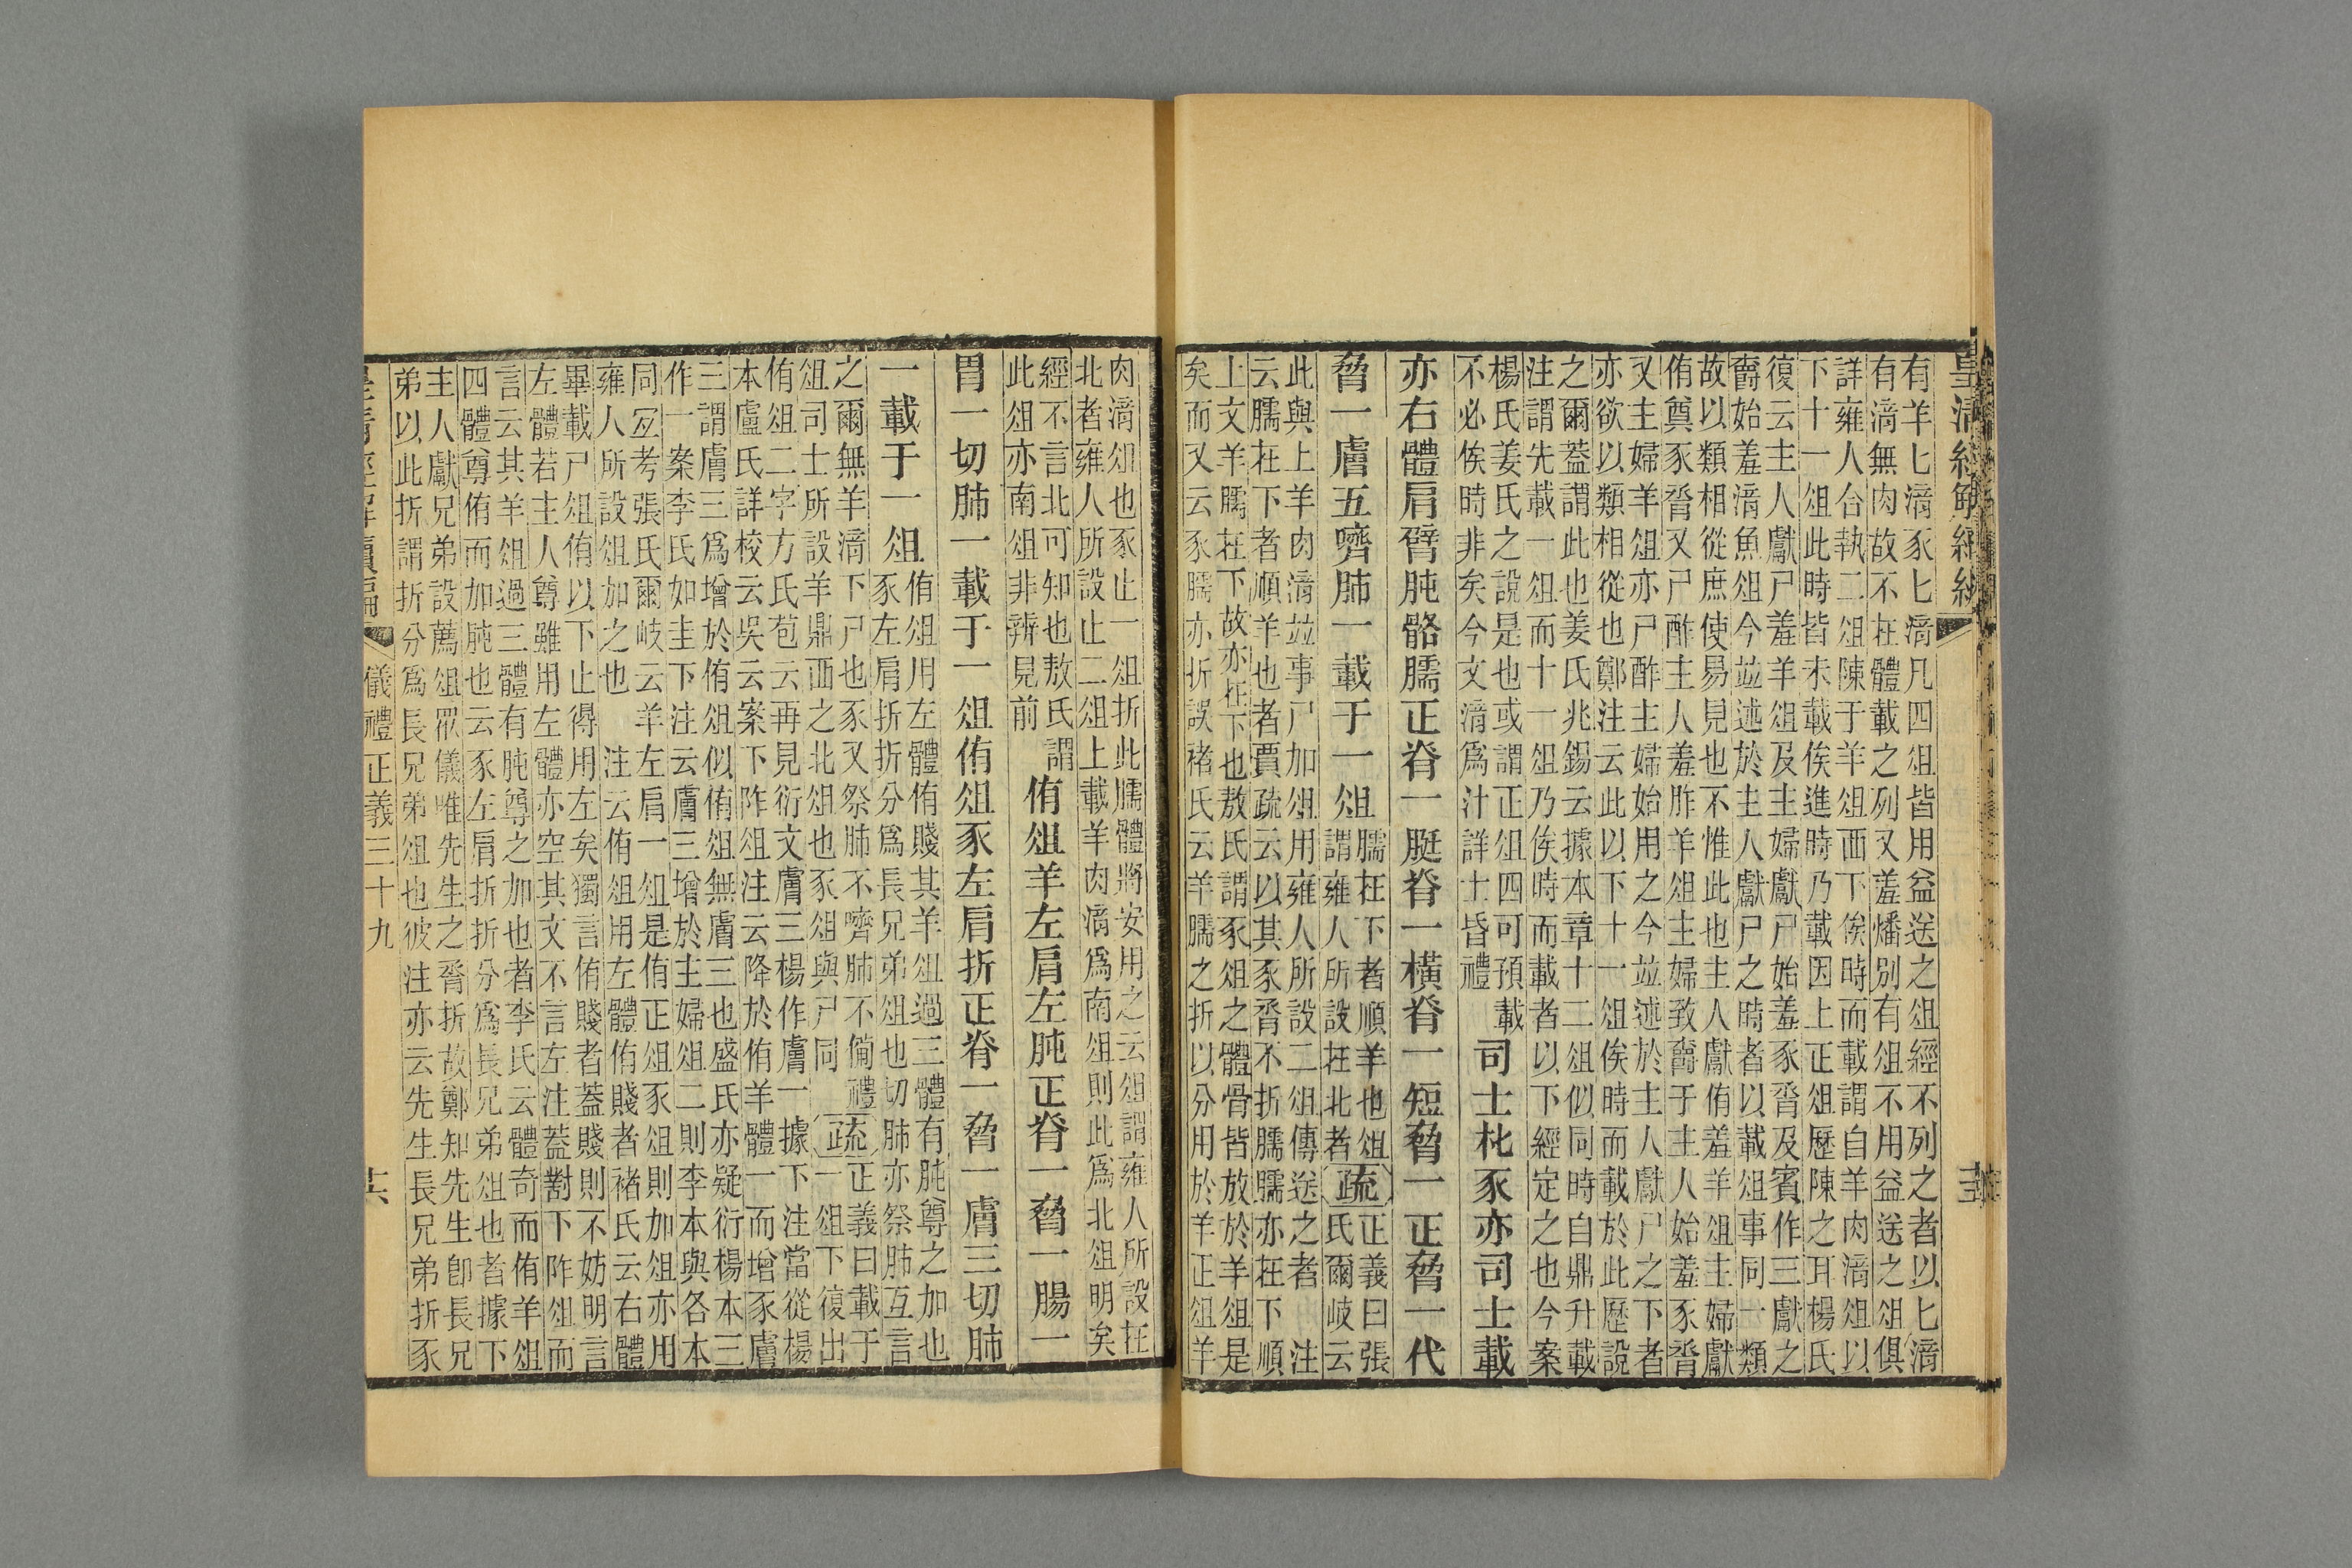 有羊匕湇豕匕湇凡四俎皆用益送之俎經不列之者以匕湇
有湇無肉故不在體載之列又羞燔別有俎不用益送之俎俱
詳雍人合執二俎陳于羊俎西下俟時而載謂自羊肉湇俎以
下十一俎此時皆未載俟進時乃載因上正俎歷陳之耳楊氏
復云主人獻尸羞羊俎及主婦獻尸始羞豕脀及賓作三獻之
始羞湇魚俎今竝述於主人獻尸之時者以載俎事同一類
故以類相從庶使易見也不惟此也主人獻侑羞羊俎主婦獻
侑奠豕脀又尸酢主人羞胙羊俎主婦致于主人始羞豕脀
又主婦羊俎亦尸酢主婦始用之今竝述於主人獻尸之下者
亦欲以類相從也鄭注云此以下十一俎俟時而載於此歷說
之爾蓋謂此也姜氏兆錫云據本章十二俎似同時自鼎升載
注謂先載一俎而十一俎乃俟時而載者以下經定之也今案
楊氏姜氏之說是也或謂正俎四可預載
不必俟時非矣今文湇為汁詳士昏禮
司士朼豕亦司士載
亦右體肩臂肫骼臑正脊一脡脊一橫脊一短脅一正脅一代
脅一膚五嚌肺一載于一俎
臑在下者順羊也俎
謂雍人所設在北者
疏
正義曰張
氏爾岐云
此與上羊肉湇竝事尸加俎用雍人所設二俎傳送之者注
云臑在下者順羊也者賈疏云以其豕脀不折臑臑亦在下順
上文羊臑在下故亦在下也敖氏謂豕俎之體骨皆放於羊俎是
矣而又云豕臑亦折誤褚氏云羊臑之折以分用於羊正俎羊
肉湇俎也豕止一俎折此臑體將安用之云俎謂雍人所設在
北者雍人所設止二俎上載羊肉湇為南俎則此為北俎明矣
經不言北可知也敖氏謂
此俎亦南俎非辨見前
侑俎羊左肩左肫正脊一脅一腸一
胃一切肺一載于一俎侑俎豕左肩折正脊一脅一膚三切肺
一載于一俎
侑俎用左體侑賤其羊俎過三體有肫尊之加也
豕左肩折折分為長兄弟俎也切肺亦祭肺互言
之爾無羊湇下尸也豕又祭肺不嚌肺不備禮
俎司士所設羊鼎西之北俎也豕俎與尸同
疏
正義曰載于
一俎下復出
侑俎二字方氏苞云再見衍文膚三楊作膚一據下注當從楊
本盧氏詳校云吳云案下阼俎注云降於侑羊體一而增豕膚
三謂膚三為增於侑俎似侑俎無膚三也盛氏亦疑衍楊本三
作一案李氏如圭下注云膚三增於主婦俎二則李本與各本
同宜考張氏爾岐云羊左肩一俎是侑正俎豕俎則加俎亦用
雍人所設俎加之也注云侑俎用左體侑賤者褚氏云右體
畢載尸俎侑以下止得用左矣獨言侑賤者蓋賤則不妨明言
左體若主人尊雖用左體亦空其文不言左注蓋對下阼俎而
言云其羊俎過三體有肫尊之加也者李氏云體奇而侑羊俎
四體尊侑而加肫也云豕左肩折折分為長兄弟俎也者據下
主人獻兄弟設薦俎眾儀唯先生之脀折故鄭知先生卽長兄
弟以此折謂折分為長兄弟俎也彼注亦云先生長兄弟折豕
儀禮正義三十九